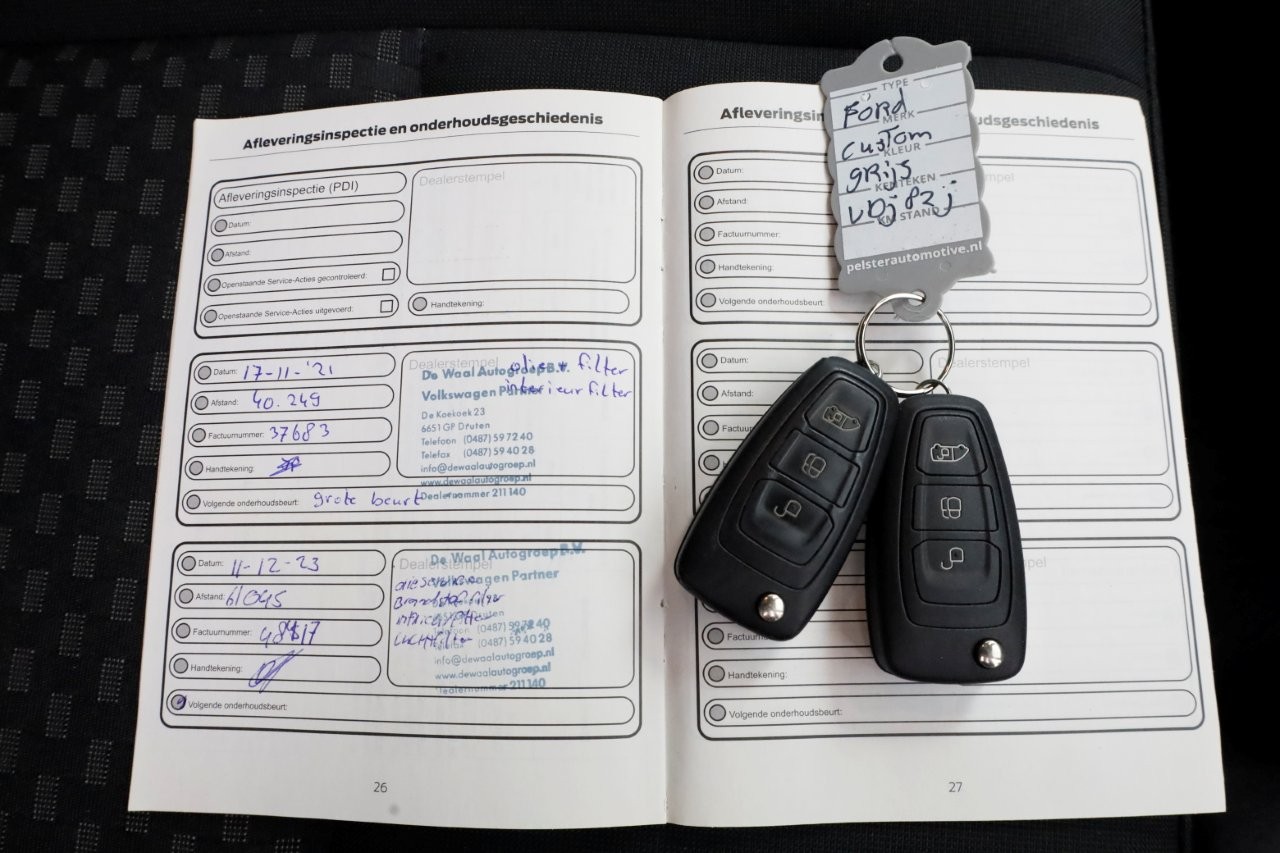 Afleveringsinspectie en onderhoudsgeschiedenis
Afleveringsinspectie (PDI)
Dealerstempel
Datum:
Afstand:
Openstaande Service-Acties gecontroleerd:
Openstaande Service-Acties uitgevoerd:
Handtekening:
Datum: 17-11-'21
Afstand: 40.249
Factuurnummer: 37683
Handtekening:
Volgende onderhoudsbeurt: grote beurt
Dealerstempel
olie + filter
interieur filter
De Waal Autogroep B.V.
Volkswagen Partner
De Koekoek 23
6651 GP Druten
Telefoon (0487) 59 72 40
Telefax (0487) 59 40 28
info@dewaalautogroep.nl
www.dewaalautogroep.nl
Dealernummer 211140
Datum: 11-12-23
Afstand: 61045
Factuurnummer:
Handtekening:
Volgende onderhoudsbeurt:
Dealerstempel
De Waal Autogroep B.V.
Volkswagen Partner
Brandstoffilter
Interieurfilter
Luchtfilter
Druten
Telefoon (0487) 59 72 40
Telefax (0487) 59 40 28
info@dewaalautogroep.nl
www.dewaalautogroep.nl
Dealernummer 211140
26
Afleveringsin
udsgeschiedenis
Datum:
Afstand:
Factuurnummer:
Handtekening:
Volgende onderhoudsbeurt:
Datum:
Afstand:
Factuu
Factuu
Handtekening:
Volgende onderhoudsbeurt:
27
TYPE
Ford
MERK
Custom
KLEUR
grijs
KENTEKEN
VDj82j
KM STAND
pelsterautomotive.nl